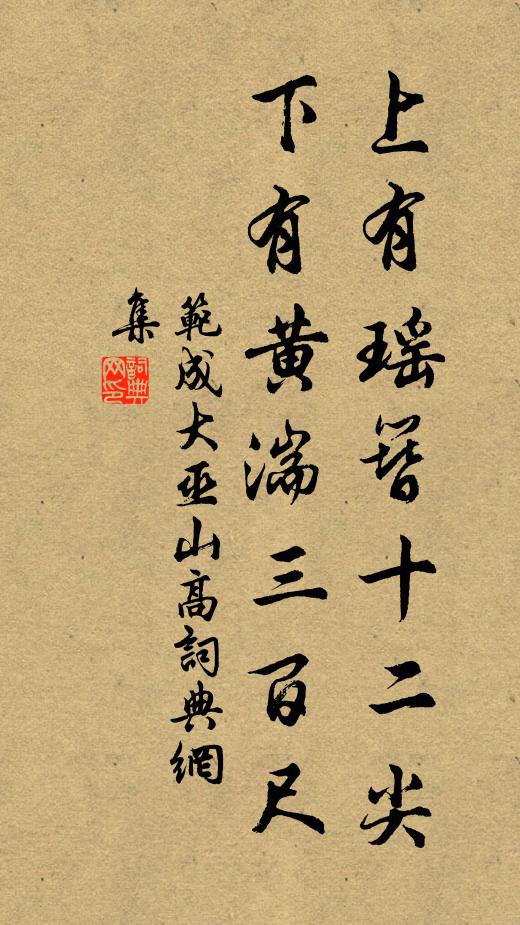 上有瑶簪十二尖
下有黄湍三百尺
範成大巫山高詞典網
集
詞典网印